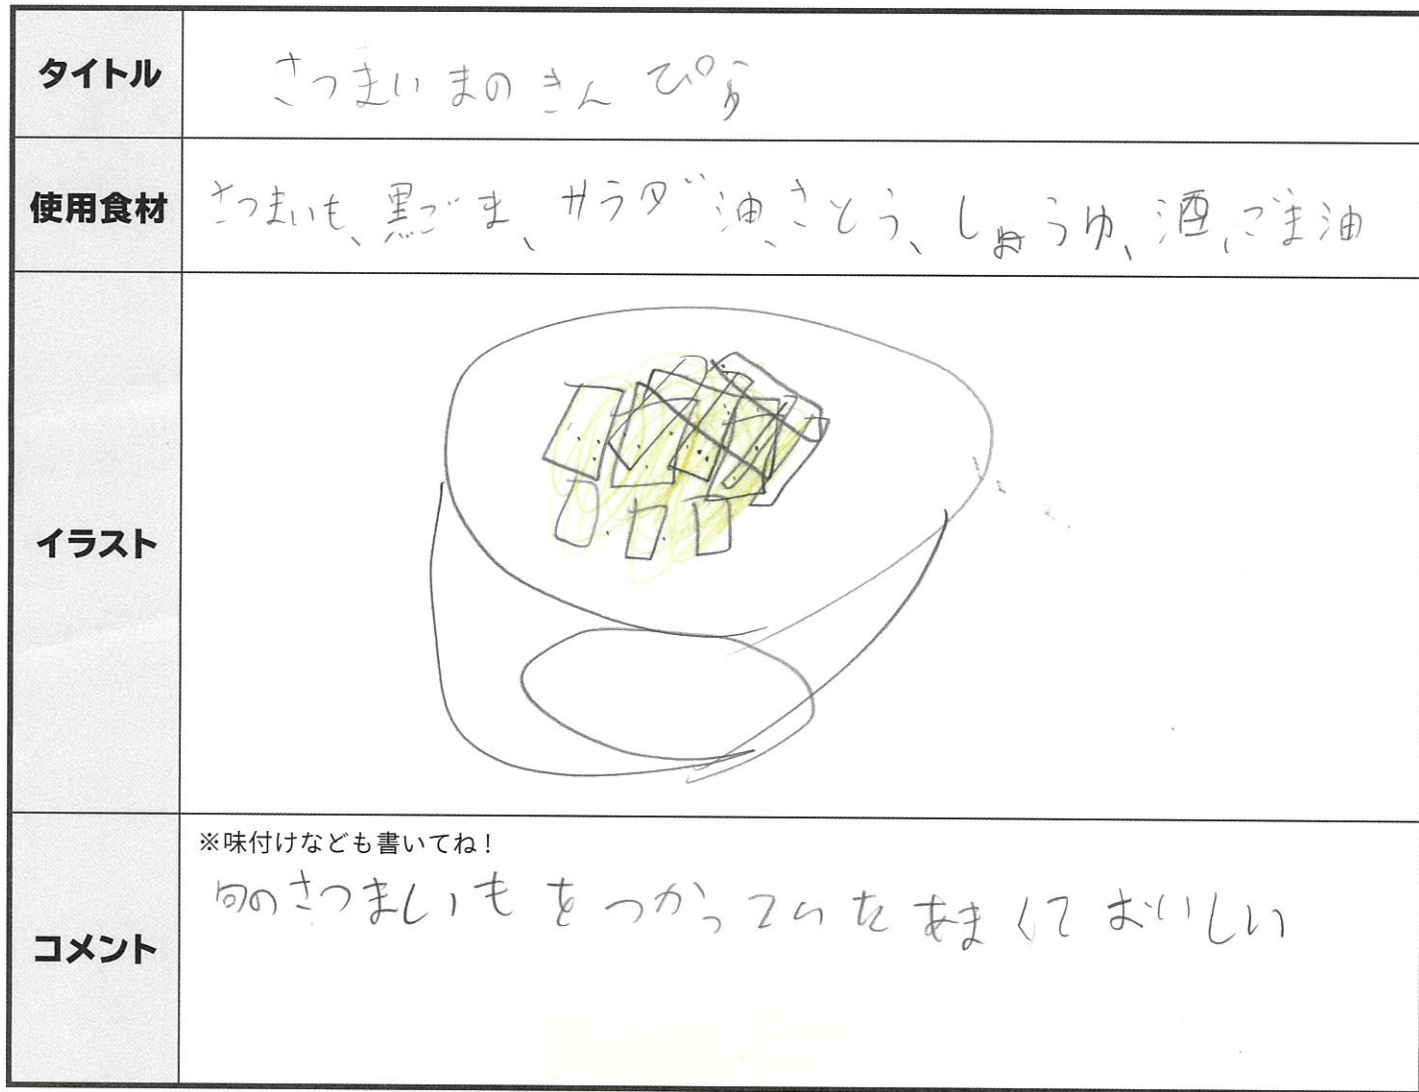 タイトル
さつまいまのきんぴら
使用食材
さつまいも、黒ごま、サラダ油、さとう、しょうゆ、酒、ごま油
イラスト
コメント
※味付けなども書いてね！
旬のさつましいもをつかっていたあまくておいしい